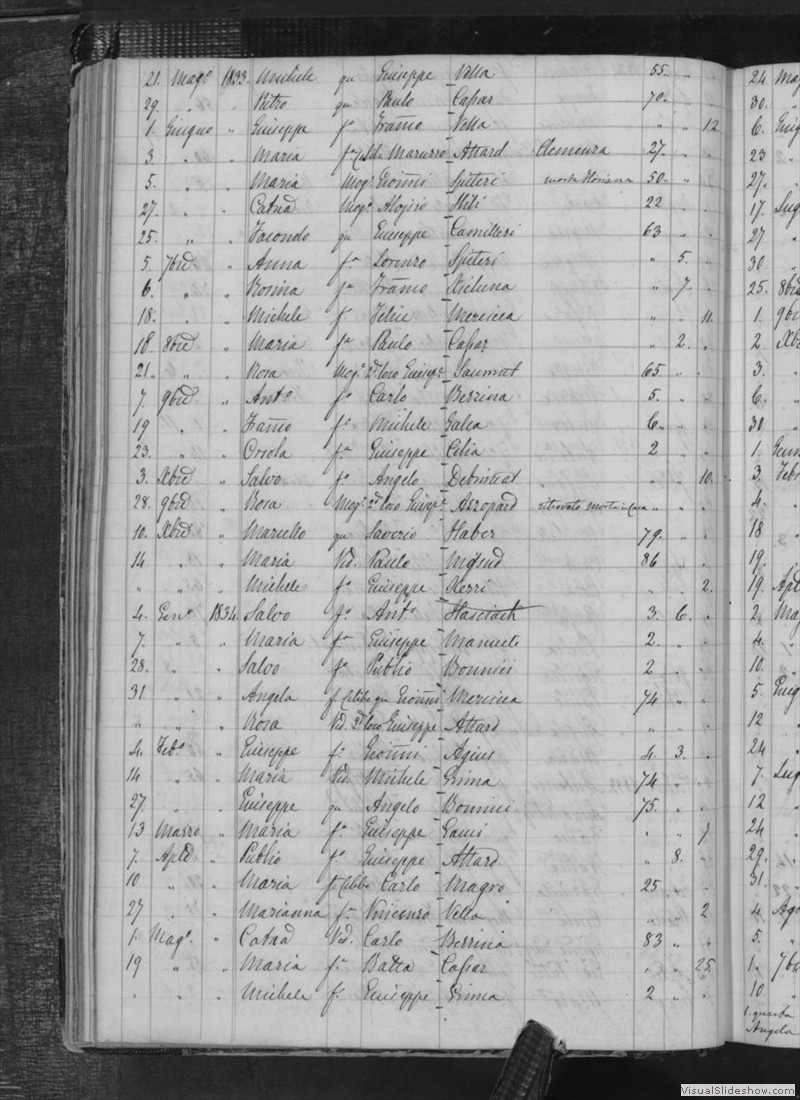 21. Mag.o 1833. Michele qu Giuseppe Vella 55. " "
29. " " Pietro qu Paulo Caşar 70. " "
1. Giugno " Giuseppe fo Franco Vella " " 12
3 " " Maria fa Attard Clemenza 27. " "
5. " " Maria Mog.e Gioñni Spiteri 50. "
27. " " Catna Mog.e Aloisio 22
25. " " Facondo qu Giuseppe Camilleri 63 " "
5. 7bre " Anna fa Lorenzo Spiteri " 5. "
6. " " Rosina fa Franco " 7. "
18. " " Michele fo Felice Mercieca " " 11.
18. 8bre " Maria fa Paulo Caşar " 2. "
21. " " Rosa Mog.e 2do loco Giusep.e 65 " "
7. 9bre " Anto fo Carlo Berzina 5. "
19 " " Franco fo Michele Galea 6 " "
23. " " Orsola fa Giuseppe Cilia 2 " "
3. Xbre " Salvo fo Angelo " " 10.
28. 9bre " Rosa Mog.e 2do loco Giusep.e Azzopard ritrovata morta in Casa " "
10. Xbre " Marcello qu Saverio Haber 79. " "
14 " " Maria Ved. Paulo Mifsud 86 " "
" " " Michele fo Giuseppe Xerri " " 2.
4. Gen.o 1834. Salvo fo Anto 3. 6. "
7. " " Maria fa Giuseppe Manuele 2. " "
28. " " Salvo fo Publio Bonnici 2 " "
31 " " Angela fa Celibe qu Gioñni Mercieca 74 " "
" " " Rosa Ved. 2do loco Giuseppe Attard " " "
4. Feb.o " Giuseppe fo Gioñni Agius 4. 3. "
14 " " Maria Ved. Michele Grima 74 " "
27. " " Giuseppe qu Angelo Bonnici 75. " "
13 Marzo " Maria fa Giuseppe Gauci " " 7
7. Aple " Publio fo Giuseppe Attard " 8. "
10 " " Maria fa Celibe Carlo Magro 25 " "
27 " " Marianna fa Vincenzo Vella " " 2
1. Mag.o " Catna Ved. Carlo Berzina 83 " "
19 " " Maria fa Batta Caşar " " 25.
" " " Michele fo Giuseppe Grima 2 " "
24. Mag
30. "
6. Giug
23 "
27. "
17. Lug
27 "
30 "
25. 8bre
1. 9bre
2. Xbre
3. "
6. "
30 "
1. Genn
3. Febr
4. "
18 "
19. "
19. Aple
2. Mag
4. "
10. "
5. Giug
12 "
24 "
7. Lug
12 "
24 "
29. "
31. "
4. Ago
5. "
1. 7bre
10 "
Angela
VisualSlideshow.com